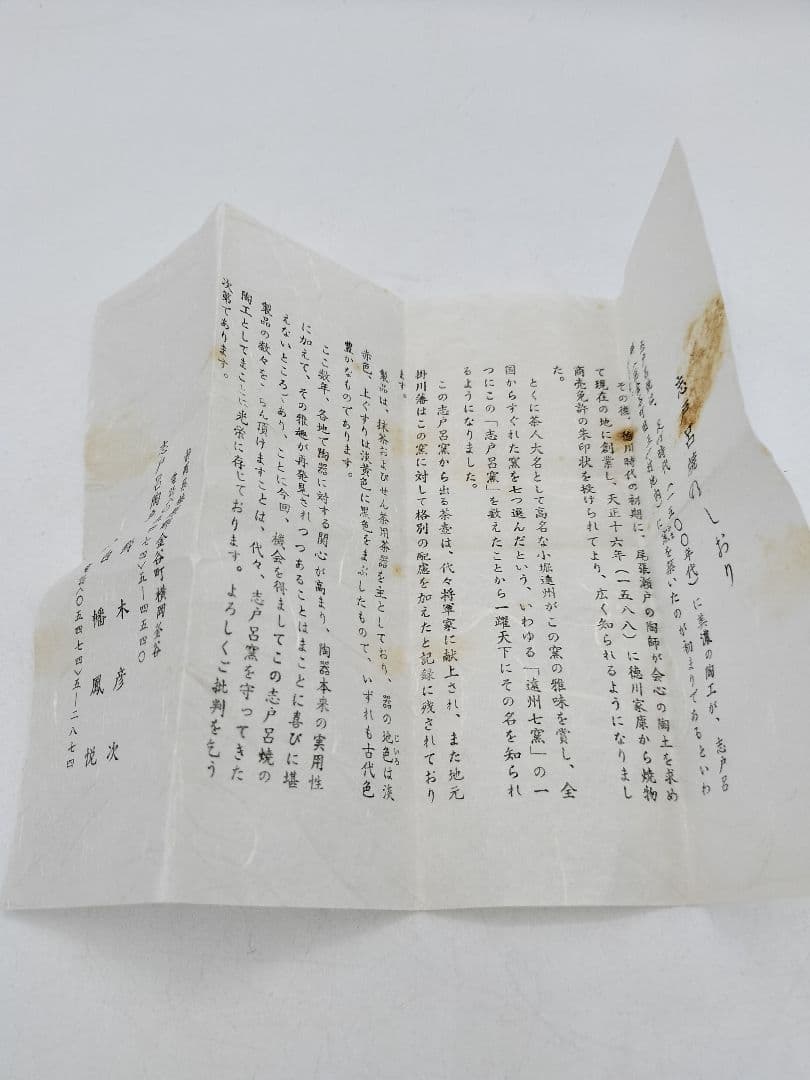 志戸呂焼のしおり
に美濃の陶工が、志戸呂
に窯を築いたのが初まりであるといわ
その後、徳川時代の初期に、尾張瀬戸の陶師が会心の陶土を求め
て現在の地に創業し、天正十六年(一五八八)に徳川家康から焼物
商売免許の朱印状を授けられてより、広く知られるようになりまし
た。
とくに茶人大名として高名な小堀遠州がこの窯の雅味を賞し、全
国からすぐれた窯を七つ選んだという、いわゆる「遠州七窯」の一
つにこの「志戸呂窯」を数えたことから一躍天下にその名を知られ
るようになりました。
この志戸呂窯から出る茶壺は、代々将軍家に献上され、また地元
掛川藩はこの窯に対して格別の配慮を加えたと記録に残されており
ます。
製品は、抹茶およびせん茶用茶器を主としており、器の地色は淡
じいろ
赤色、上ぐすりは淡黄色に黒色をまぶしたもので、いずれも古代色
豊かなものであります。
ここ数年、各地で陶器に対する関心が高まり、陶器本来の実用性
に加えて、その雅趣が再発見されつつあることはまことに喜びに堪
えないところであり、ことに今回、機会を得ましてこの志戸呂焼の
製品の数々をごらん頂けますことは、代々、志戸呂窯を守ってきた
陶工としてまことに光栄に存じております。よろしくご批判を乞う
次第であります。
金谷町横岡釜谷
志戸呂陶
七四)五―四五四〇
木彦次
幡鳳悦
(〇五四七四)五―二八七四